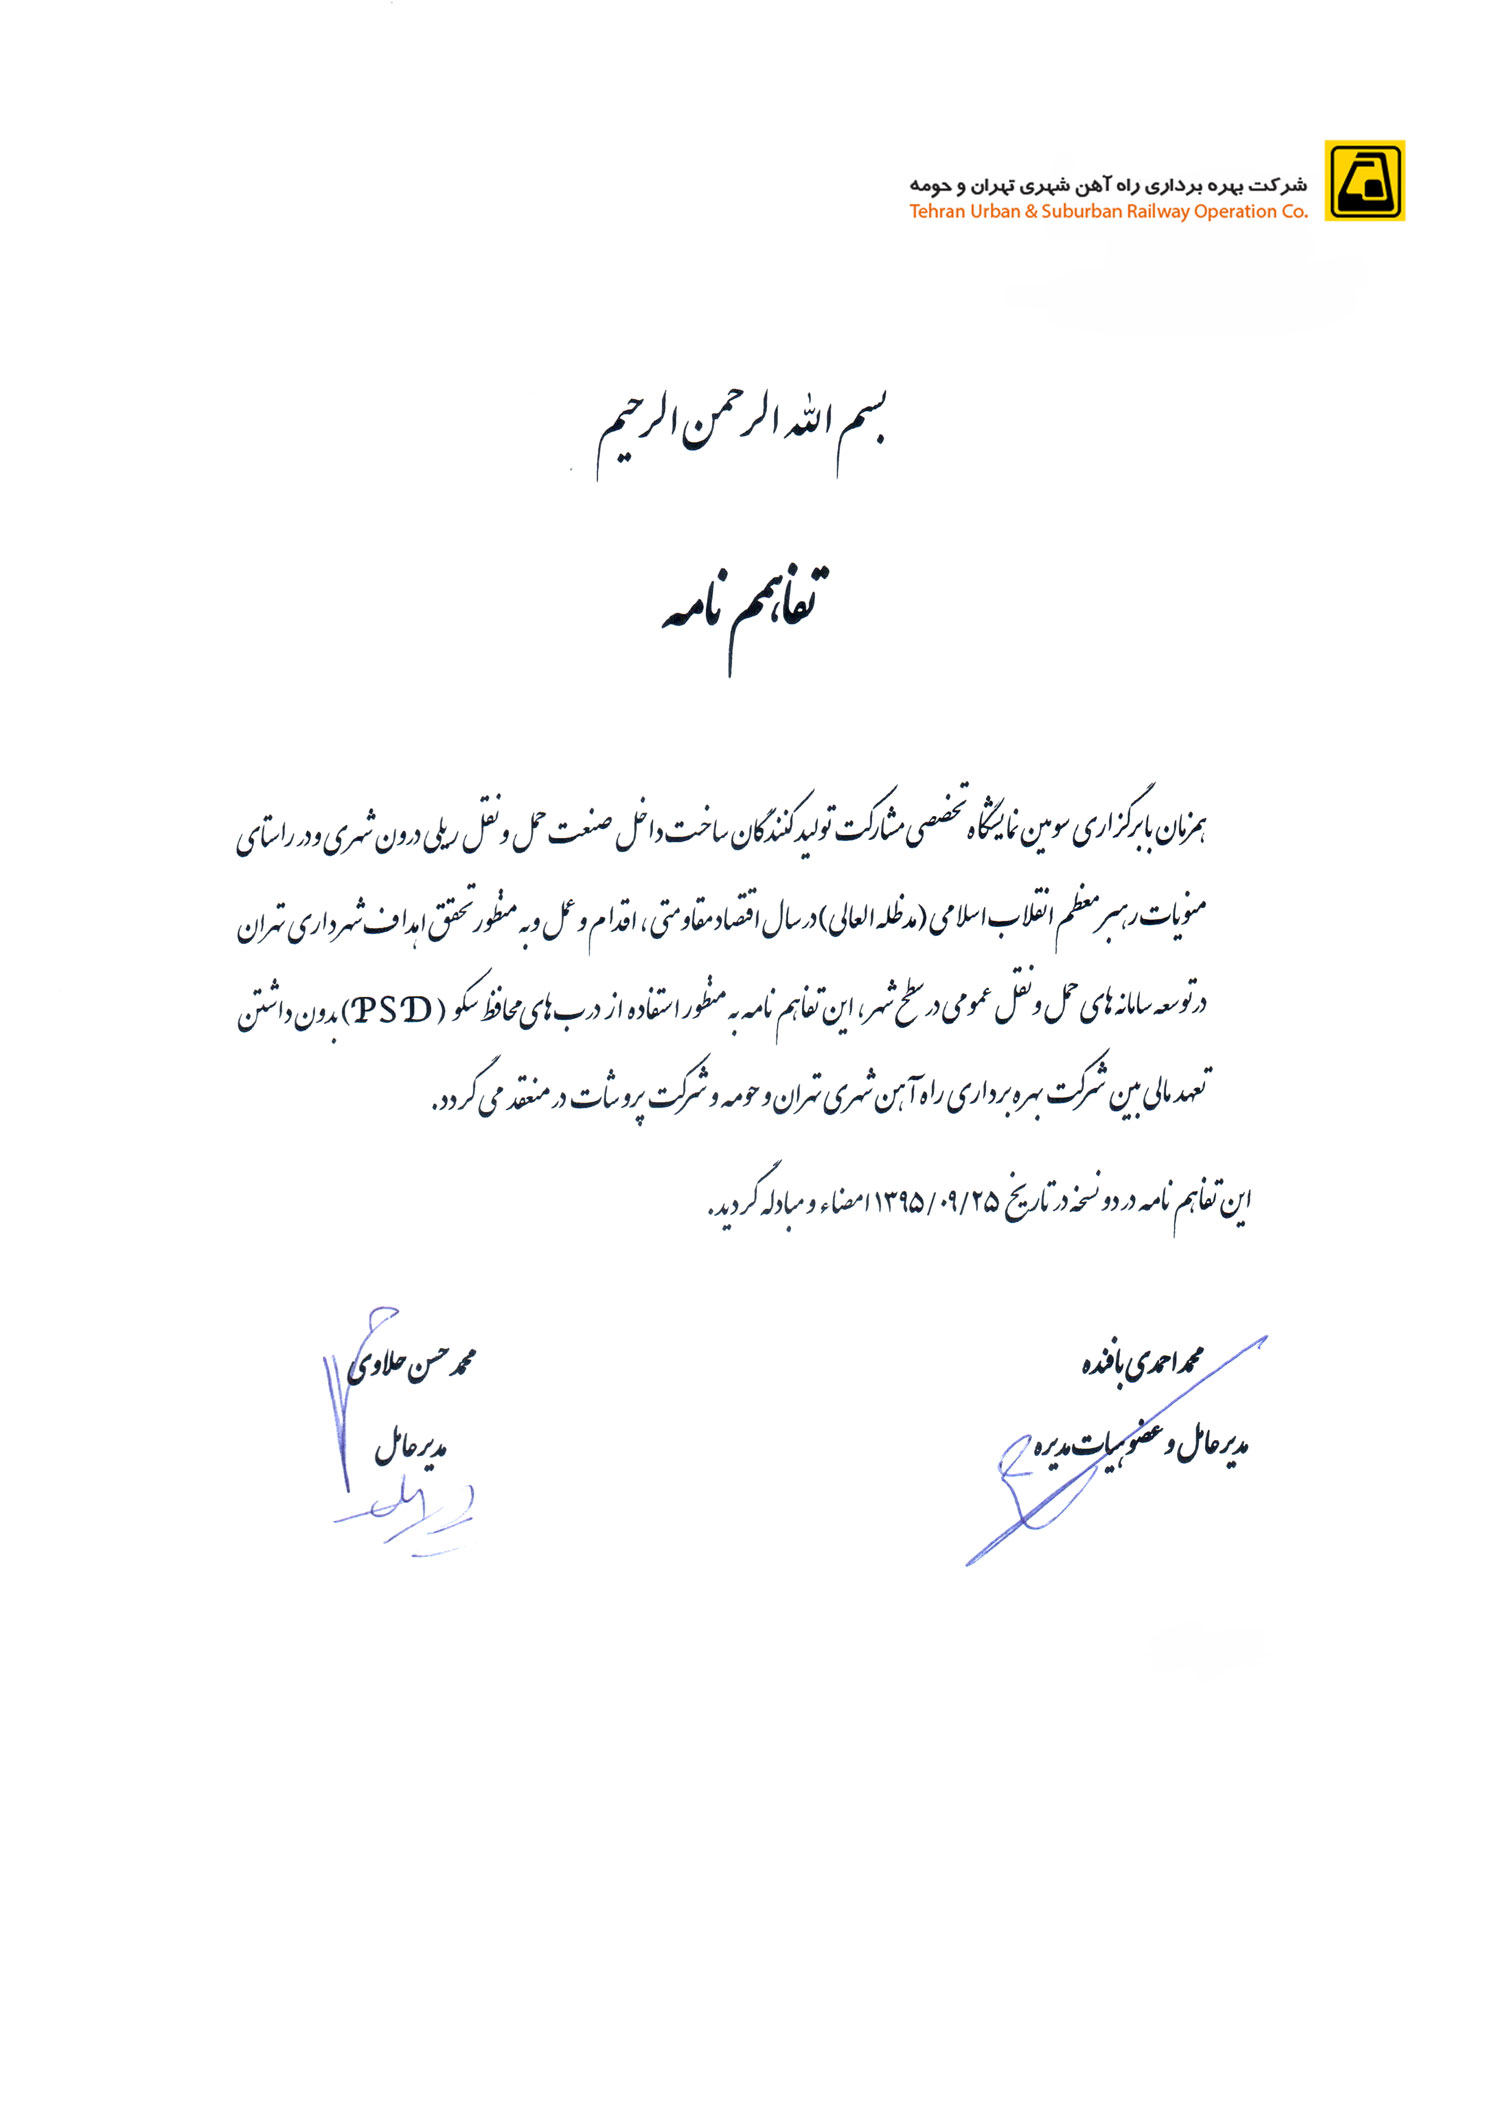 شرکت بهره برداری راه آهن شهری تهران و حومه
Tehran Urban & Suburban Railway Operation Co.
بسم الله الرحمن الرحیم
تفاهم نامه
همزمان با برگزاری سومین نمایشگاه تخصصی مشارکت تولید کنندگان ساخت داخل صنعت حمل و نقل ریلی درون شهری و در راستای
منویات رهبر معظم انقلاب اسلامی (مدظله العالی) در سال اقتصاد مقاومتی، اقدام و عمل و به منظور تحقق اهداف شهرداری تهران
در توسعه سامانه های حمل و نقل عمومی در سطح شهر، این تفاهم نامه به منظور استفاده از درب های محافظ سکو (PSD) بدون داشتن
تعهد مالی بین شرکت بهره برداری راه آهن شهری تهران و حومه و شرکت پروشات در منعقد می گردد.
این تفاهم نامه در دو نسخه در تاریخ ۱۳۹۵/۰۹/۲۵ امضاء و مبادله گردید.
محمد احمدی بافنده
محمد حسن حلاوی
مدیر عامل و عضو هیات مدیره
مدیر عامل